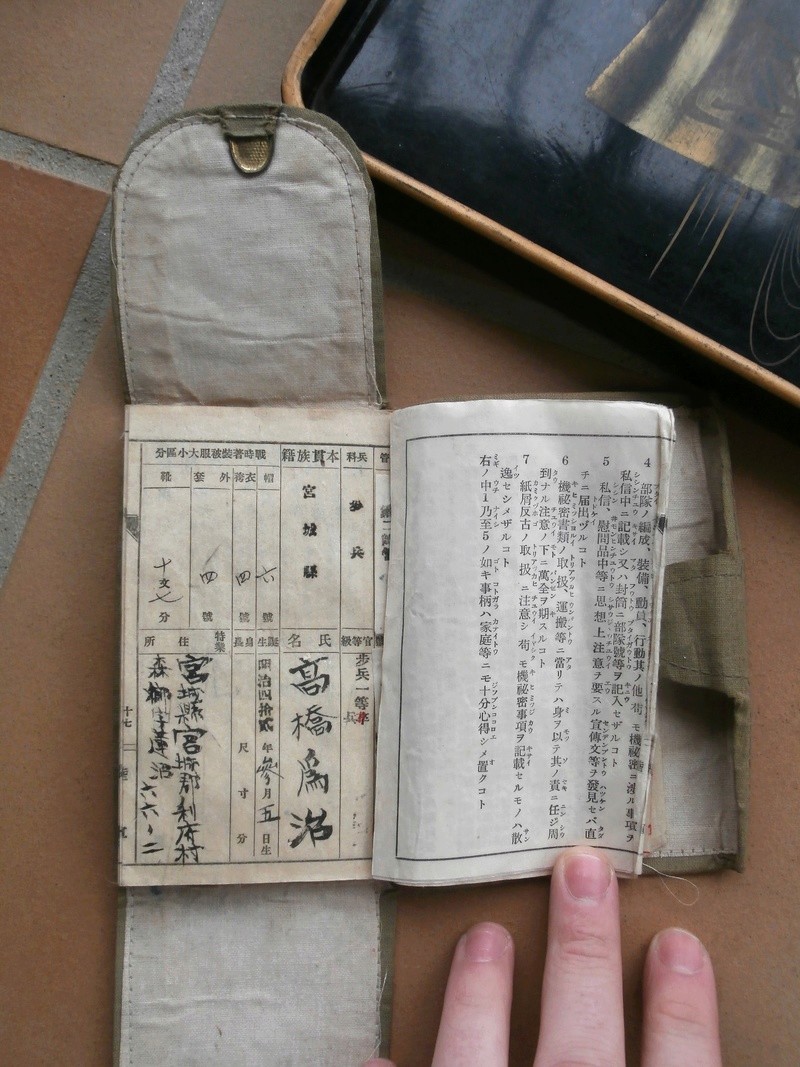 4 部隊ノ編成、裝備、動員、行動其ノ他苟モ機祕密ニ渉ル事項ヲ
私信中ニ記載シ又ハ封筒ニ部隊號等ヲ記入セザルコト
5 私信、慰問品中等ニ思想上注意ヲ要スル宣傳文等ヲ發見セバ直
チニ届出ヅルコト
6 機祕密書類ノ取扱、運搬等ニ當リテハ身ヲ以テ其ノ責ニ任ジ周
到ナル注意ノ下ニ萬全ヲ期スルコト
7 紙屑反古ノ取扱ニ注意シ苟モ機祕密事項ヲ記載セルモノハ散
逸セシメザルコト
右ノ中1乃至5ノ如キ事柄ハ家庭等ニモ十分心得シメ置クコト
管
兵科
步兵
官等級
步兵一等兵
本貫族籍
宮城縣
氏名
高橋爲治
戰時著裝被服大小區分
帽
六號
衣袴
四號
外套
四號
靴
十文七分
誕生
明治四拾貳年參月五日生
身長
尺寸分
特業
住所
宮城縣宮城郡利府村
森郷字
六六ノ二